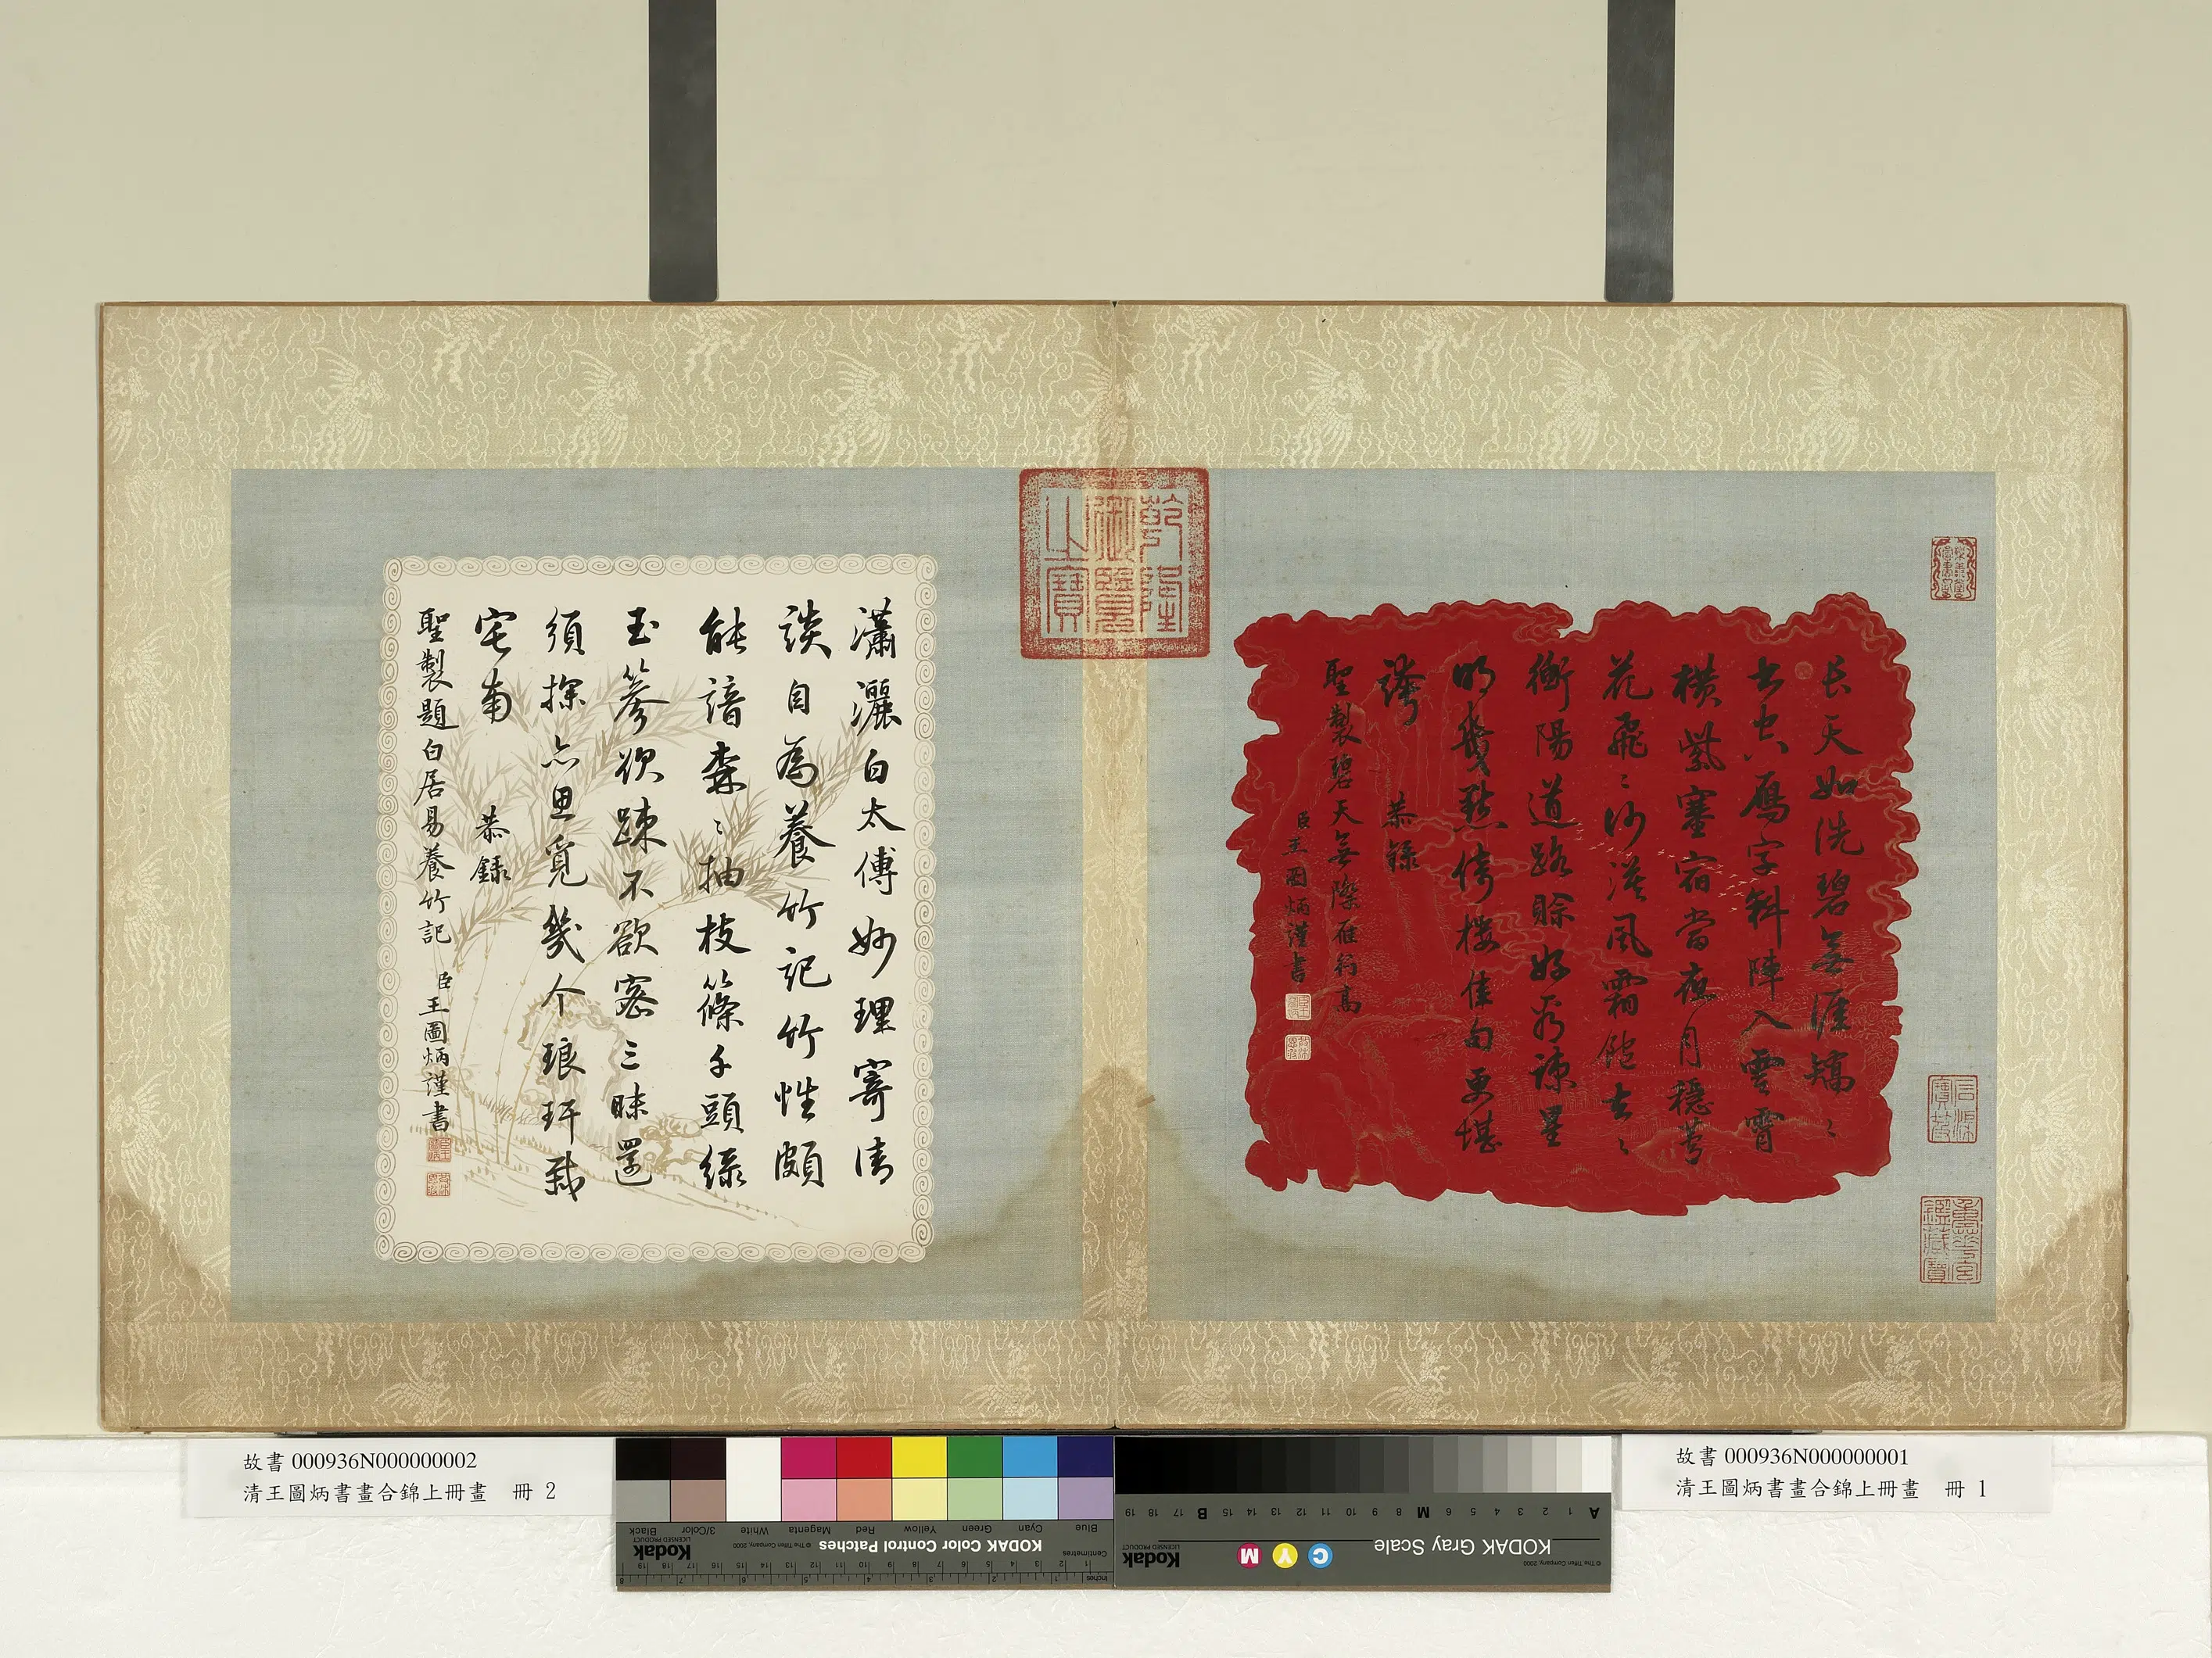 樂善堂圖書記
石渠寶笈
重華宮鑑藏寶
長天如洗碧無涯矯〻
書空鴈字斜陣入雲霄
橫紫塞宿當夜月穩蘆
花飛〻沙漠風霜飽去〻
衡陽道路賒好疎星
明幾點倚樓佳句更堪
誇 恭錄
聖製碧天無際雁行高
臣王圖炳謹書
乾隆御覽之寶
瀟灑白太傅妙理寄清
談自為養竹記竹性頗
能諳森〻抽枝篠千頭綠
玉篸欲疎不欲密三昧還
須探亦思覓幾个琅玕栽
宅南 恭錄
聖製題白居易養竹記
臣王圖炳謹書
故書 000936N000000002
清王圖炳書畫合錦上冊畫 冊 2
故書 000936N000000001
清王圖炳書畫合錦上冊畫 冊 1
KODAK Color Control Patches
© The Tiffen Company, 2000
Kodak
LICENSED PRODUCT
Blue Cyan Green Yellow Red Magenta White 3/Color Black
Centimetres
Inches
KODAK Gray Scale
© The Tiffen Company, 2000
C Y M
Kodak
LICENSED PRODUCT
A 1 2 3 4 5 6 M 8 9 10 11 12 13 14 15 B 17 18 19